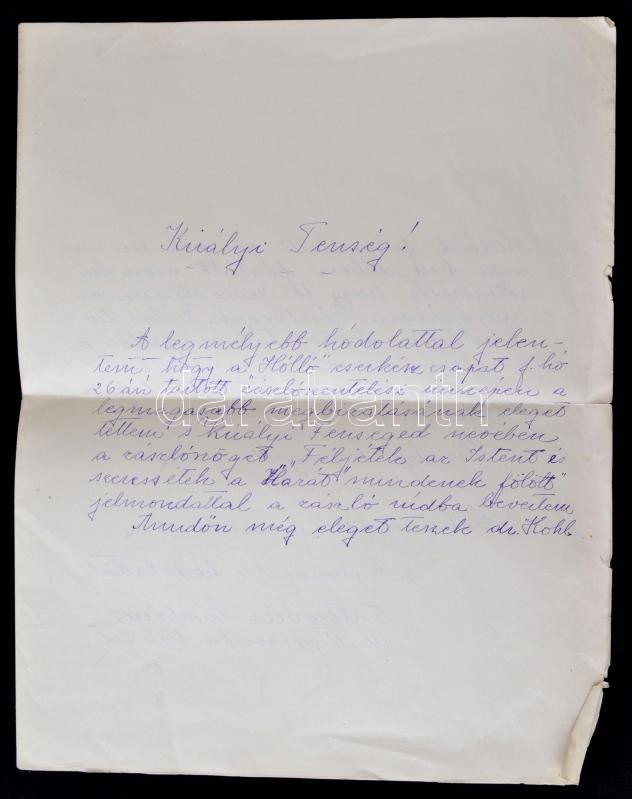 Királyi Fenség!
A legmélyebb hódolattal jelen-
tem hogy a „Holló" cserkész csapat f. hó
26án tartott zászlószentelési ünnepén a
legmagasabb megbizatásának eleget
tettem s Királyi Fenséged nevében
a zászlószöget „Féljétek az Istent és
szeressétek a Hazát mindenek fölött"
jelmondattal a zászló rúdba bevertem
Amidőn még eleget teszek dr. Kohl
darabanth